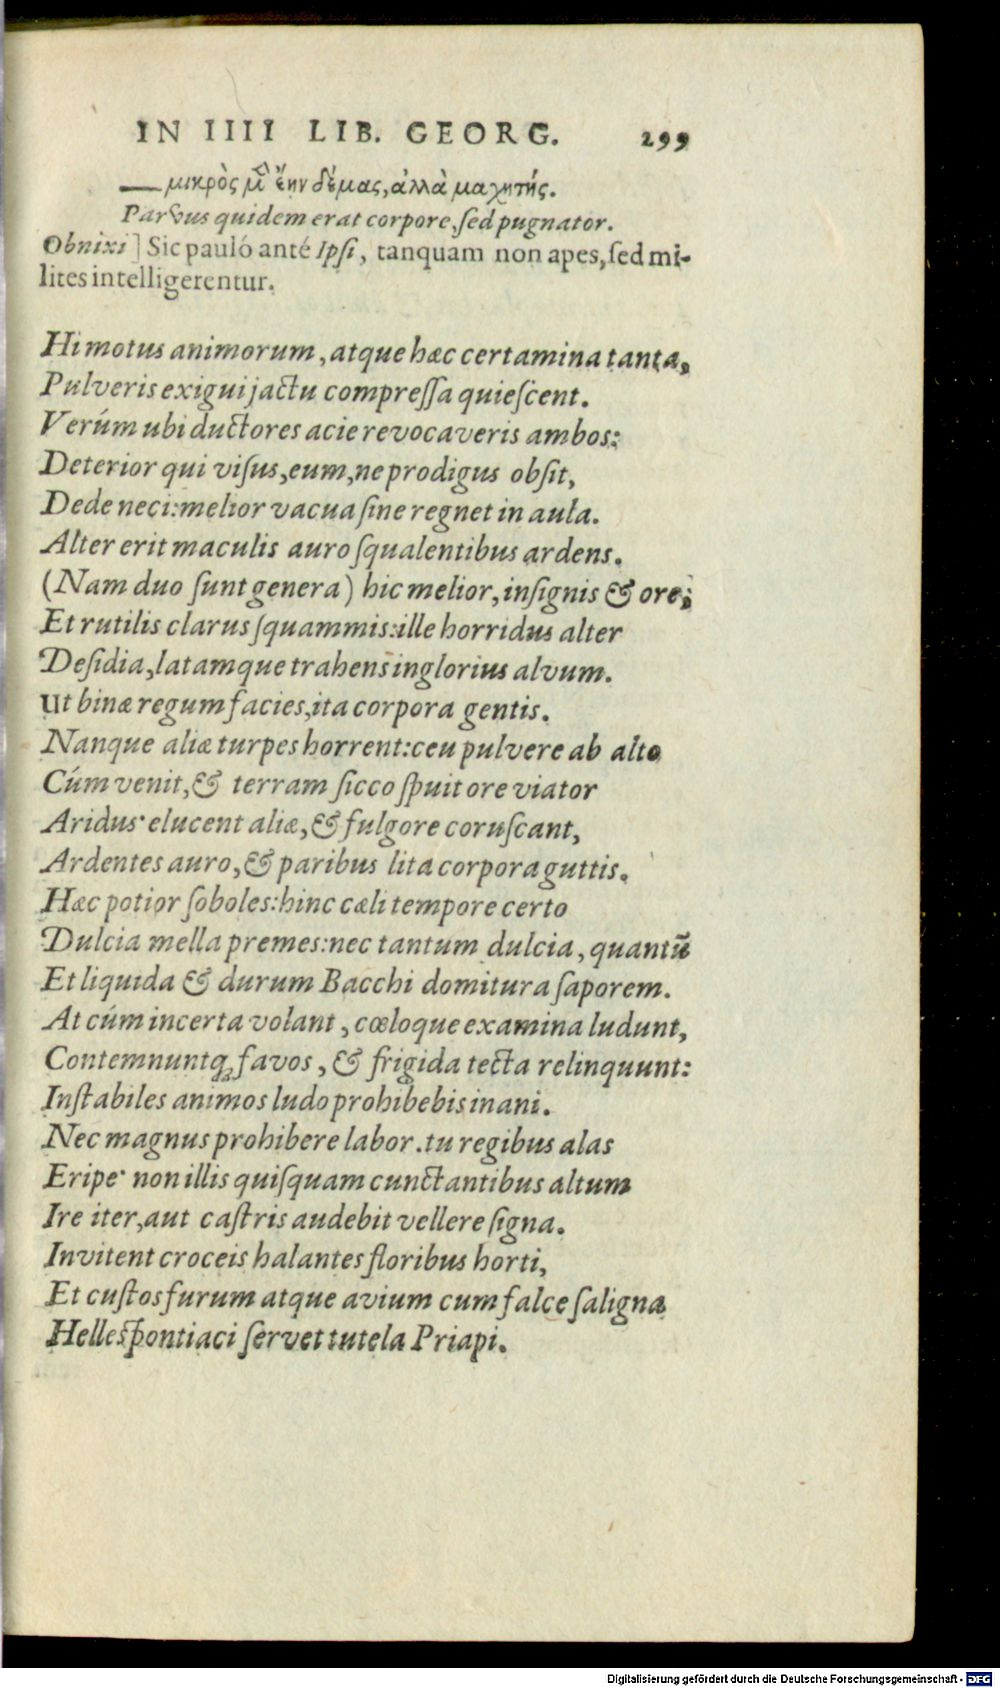 IN IIII LIB. GEORG. 299
— μικρὸς μ̂ ἔην δέμας, ἀλλὰ μαχητής.
Parvus quidem erat corpore, ſed pugnator.
Obnixi] Sic pauló anté Ipſi, tanquam non apes, ſed mi-
lites intelligerentur.
Hi motus animorum, atque hæc certamina tanta,
Pulveris exigui jactu compreſſa quieſcent.
Verúm ubi ductores acie revocaveris ambos:
Deterior qui viſus, eum, ne prodigus obſit,
Dede neci: melior vacua ſine regnet in aula.
Alter erit maculis auro ſqualentibus ardens.
(Nam duo ſunt genera) hic melior, inſignis & ore;
Et rutilis clarus ſquammis: ille horridus alter
Deſidia, latamque trahens inglorius alvum.
Ut binæ regum facies, ita corpora gentis.
Nanque aliæ turpes horrent: ceu pulvere ab alto
Cúm venit, & terram ſicco ſpuit ore viator
Aridus· elucent aliæ, & fulgore coruſcant,
Ardentes auro, & paribus lita corpora guttis.
Hæc potior ſoboles: hinc cæli tempore certo
Dulcia mella premes: nec tantum dulcia, quantū
Et liquida & durum Bacchi domitura ſaporem.
At cúm incerta volant, cœloque examina ludunt,
Contemnuntq; favos, & frigida tecta relinquunt:
Inſtabiles animos ludo prohibebis inani.
Nec magnus prohibere labor. tu regibus alas
Eripe· non illis quiſquam cunctantibus altum
Ire iter, aut caſtris audebit vellere ſigna.
Invitent croceis halantes floribus horti,
Et cuſtos furum atque avium cum falce ſaligna
Helleſpontiaci ſervet tutela Priapi.
Digitalisierung gefördert durch die Deutsche Forschungsgemeinschaft - DFG